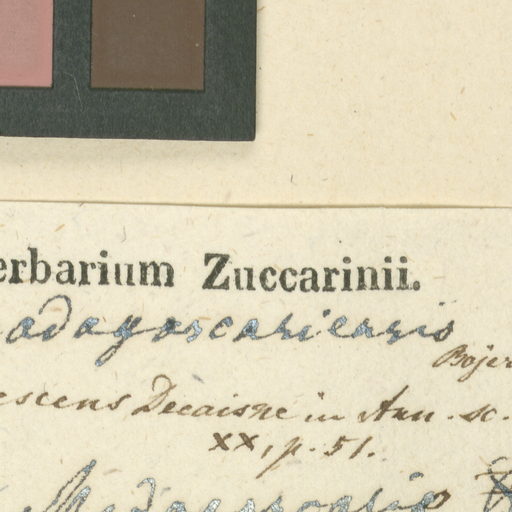 erbarium Zuccarinii.
adagascariensis
Bojer
escens Decaisne in Ann. sc.
XX, p. 51.